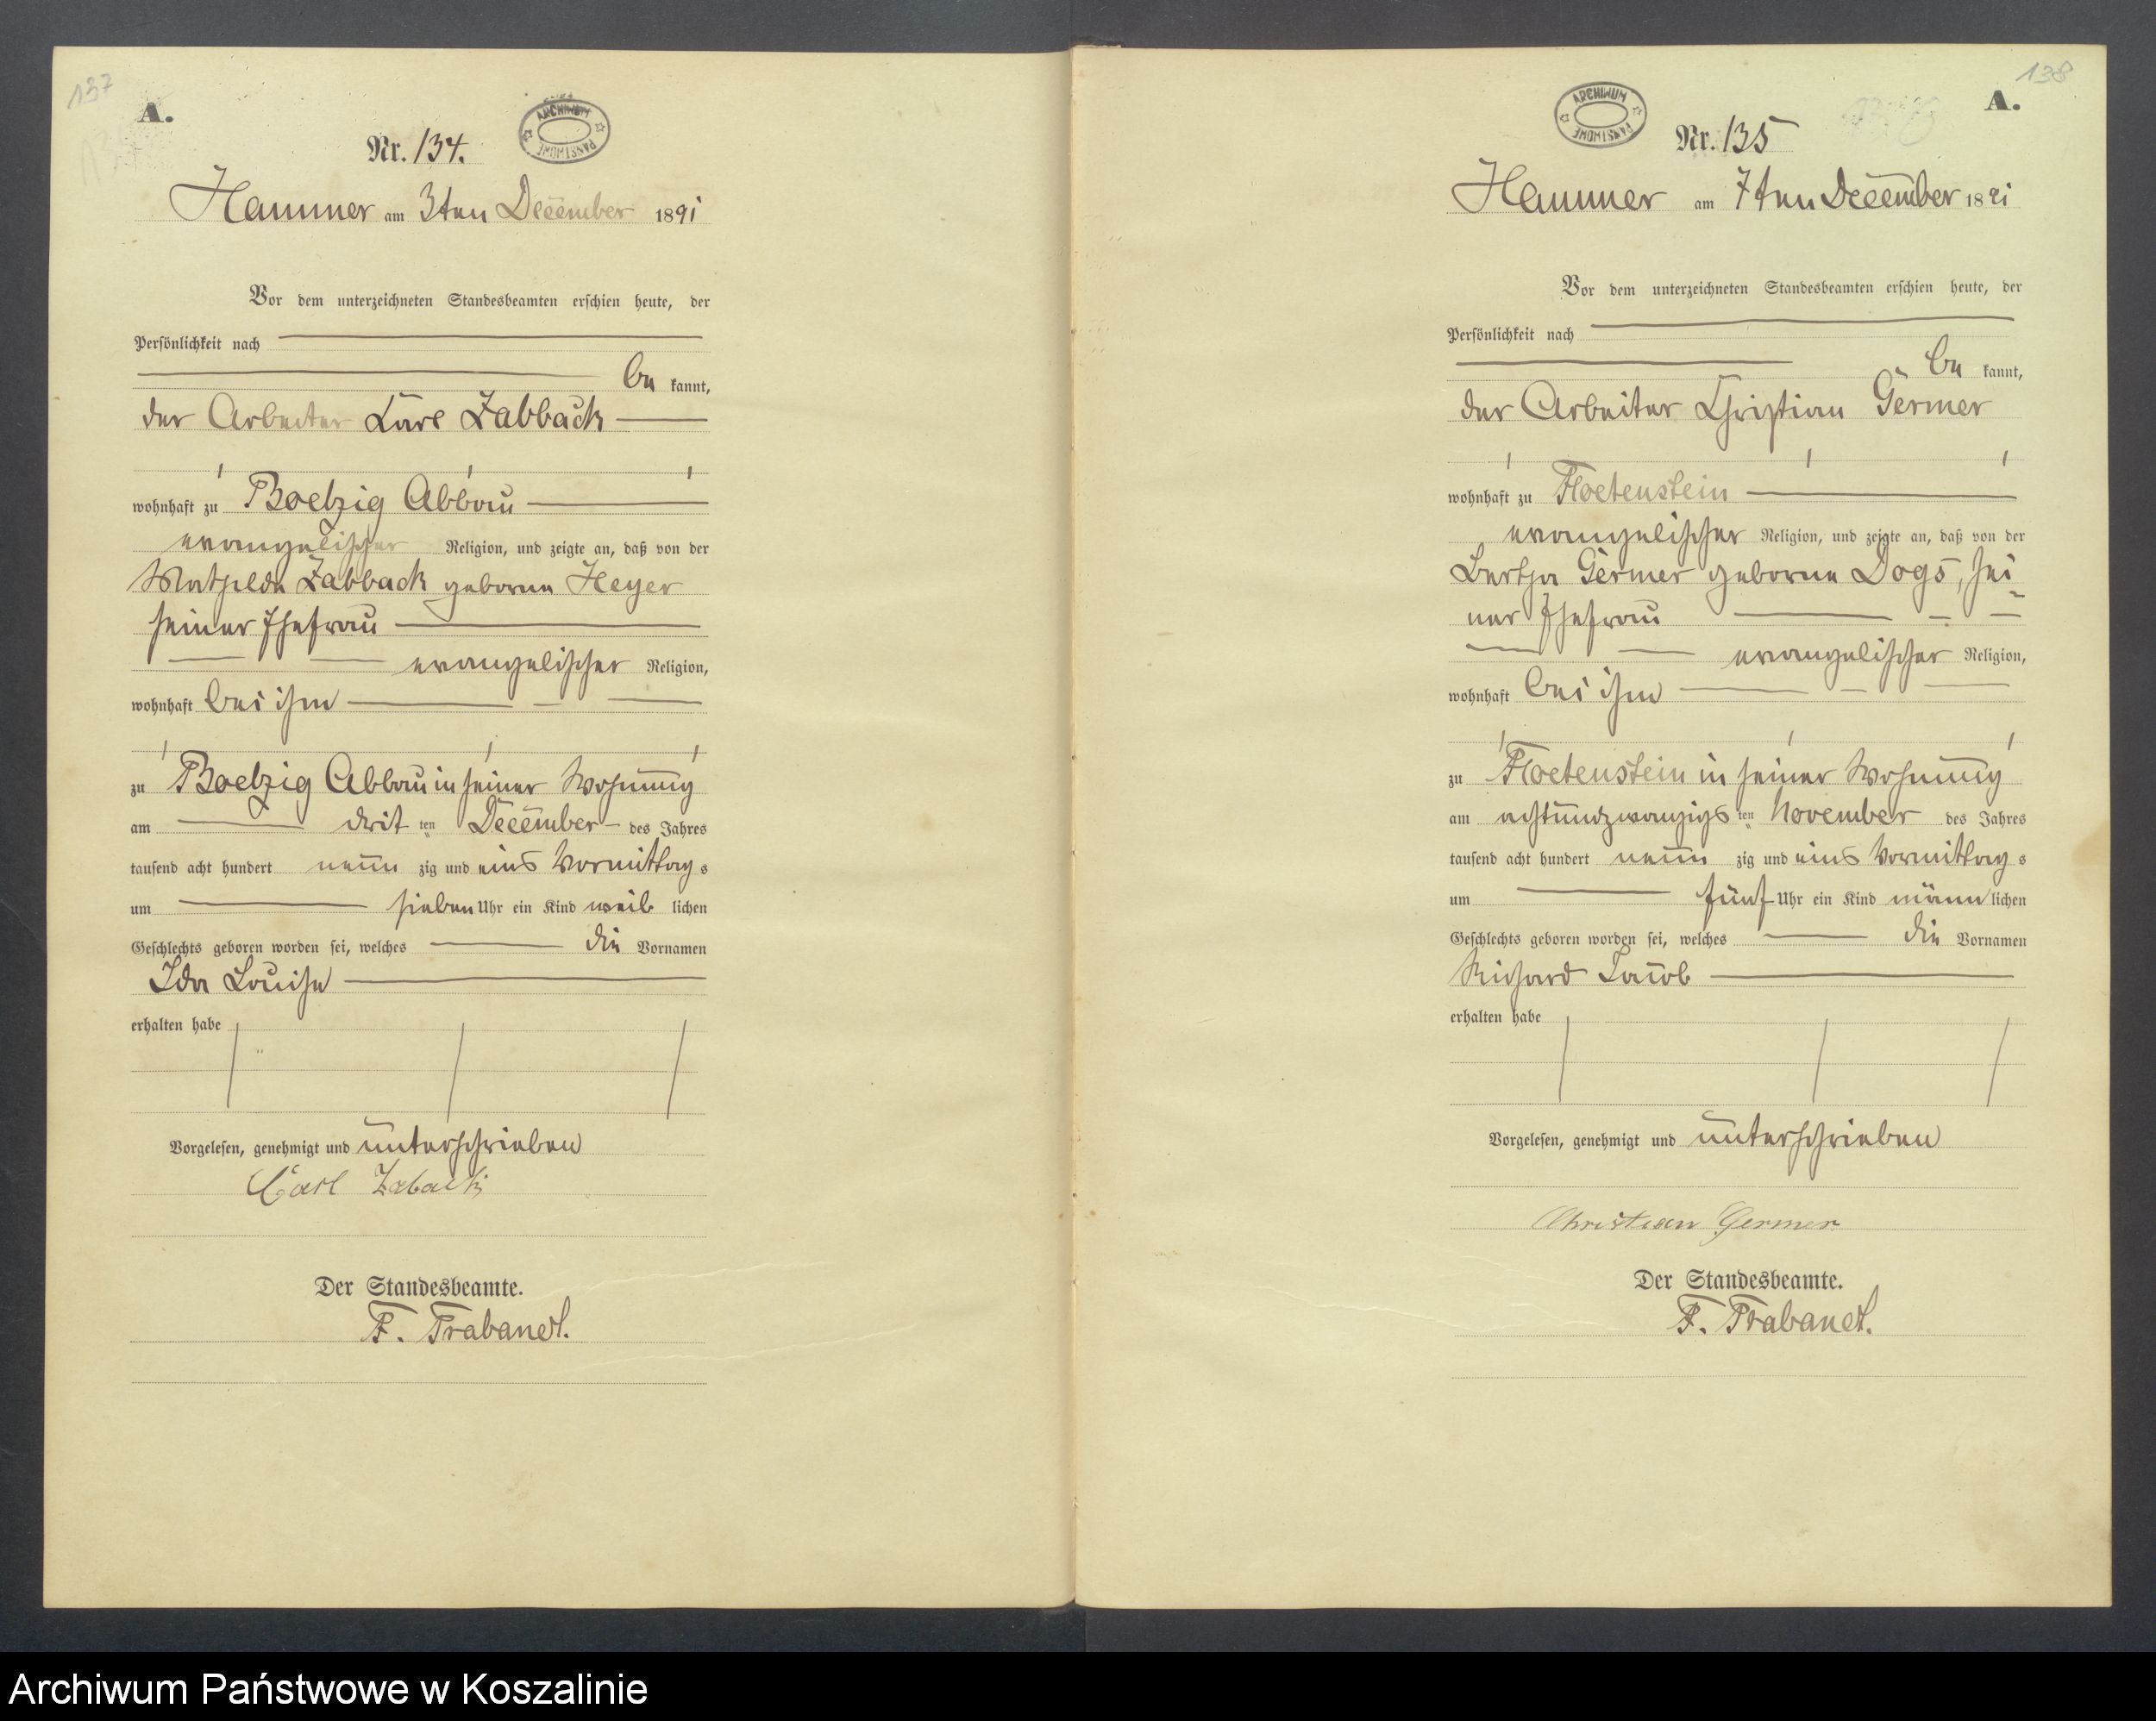 137
A.
ARCHIWUM PAŃSTWOWE
Nr. 134.
Hammer am 3ten December 1891
Vor dem unterzeichneten Standesbeamten erschien heute, der
Persönlichkeit nach
be kannt,
der Arbeiter Karl Zabback
wohnhaft zu Boelzig Abbau
evangelischer Religion, und zeigte an, daß von der
Mathilde Zabback geborne Heyer
seiner Ehefrau
evangelischer Religion,
wohnhaft bei ihm
zu Boelzig Abbau in seiner Wohnung
am drit ten December des Jahres
tausend acht hundert neun zig und eins Vormittag s
um sieben Uhr ein Kind weib lichen
Geschlechts geboren worden sei, welches die Vornamen
Ida Louise
erhalten habe
Vorgelesen, genehmigt und unterschrieben
Carl Zaback
Der Standesbeamte.
F. Trabandt.
138
A.
ARCHIWUM PAŃSTWOWE
Nr. 135
Hammer am 7ten December 1891
Vor dem unterzeichneten Standesbeamten erschien heute, der
Persönlichkeit nach
be kannt,
der Arbeiter Christian Germer
wohnhaft zu Floetenstein
evangelischer Religion, und zeigte an, daß von der
Bertha Germer geborne Dogs, sei-
ner Ehefrau
evangelischer Religion,
wohnhaft bei ihm
zu Floetenstein in seiner Wohnung
am achtundzwanzigs ten November des Jahres
tausend acht hundert neun zig und eins Vormittag s
um fünf Uhr ein Kind männ lichen
Geschlechts geboren worden sei, welches die Vornamen
Richard Jacob
erhalten habe
Vorgelesen, genehmigt und unterschrieben
Christian Germer
Der Standesbeamte.
F. Trabandt.
Archiwum Państwowe w Koszalinie